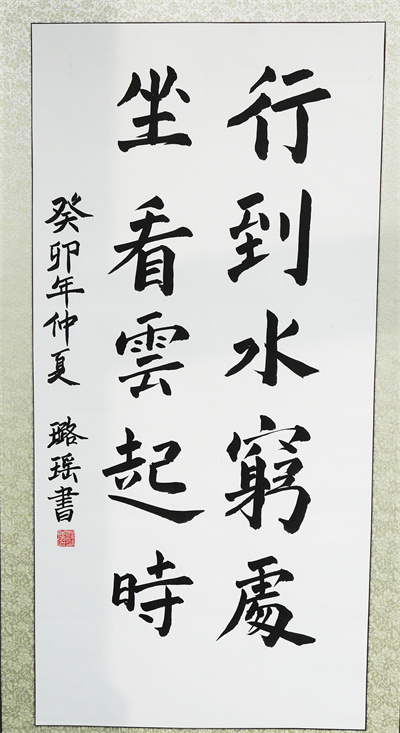 行到水窮處
坐看雲起時
癸卯年仲夏 璐瑶書